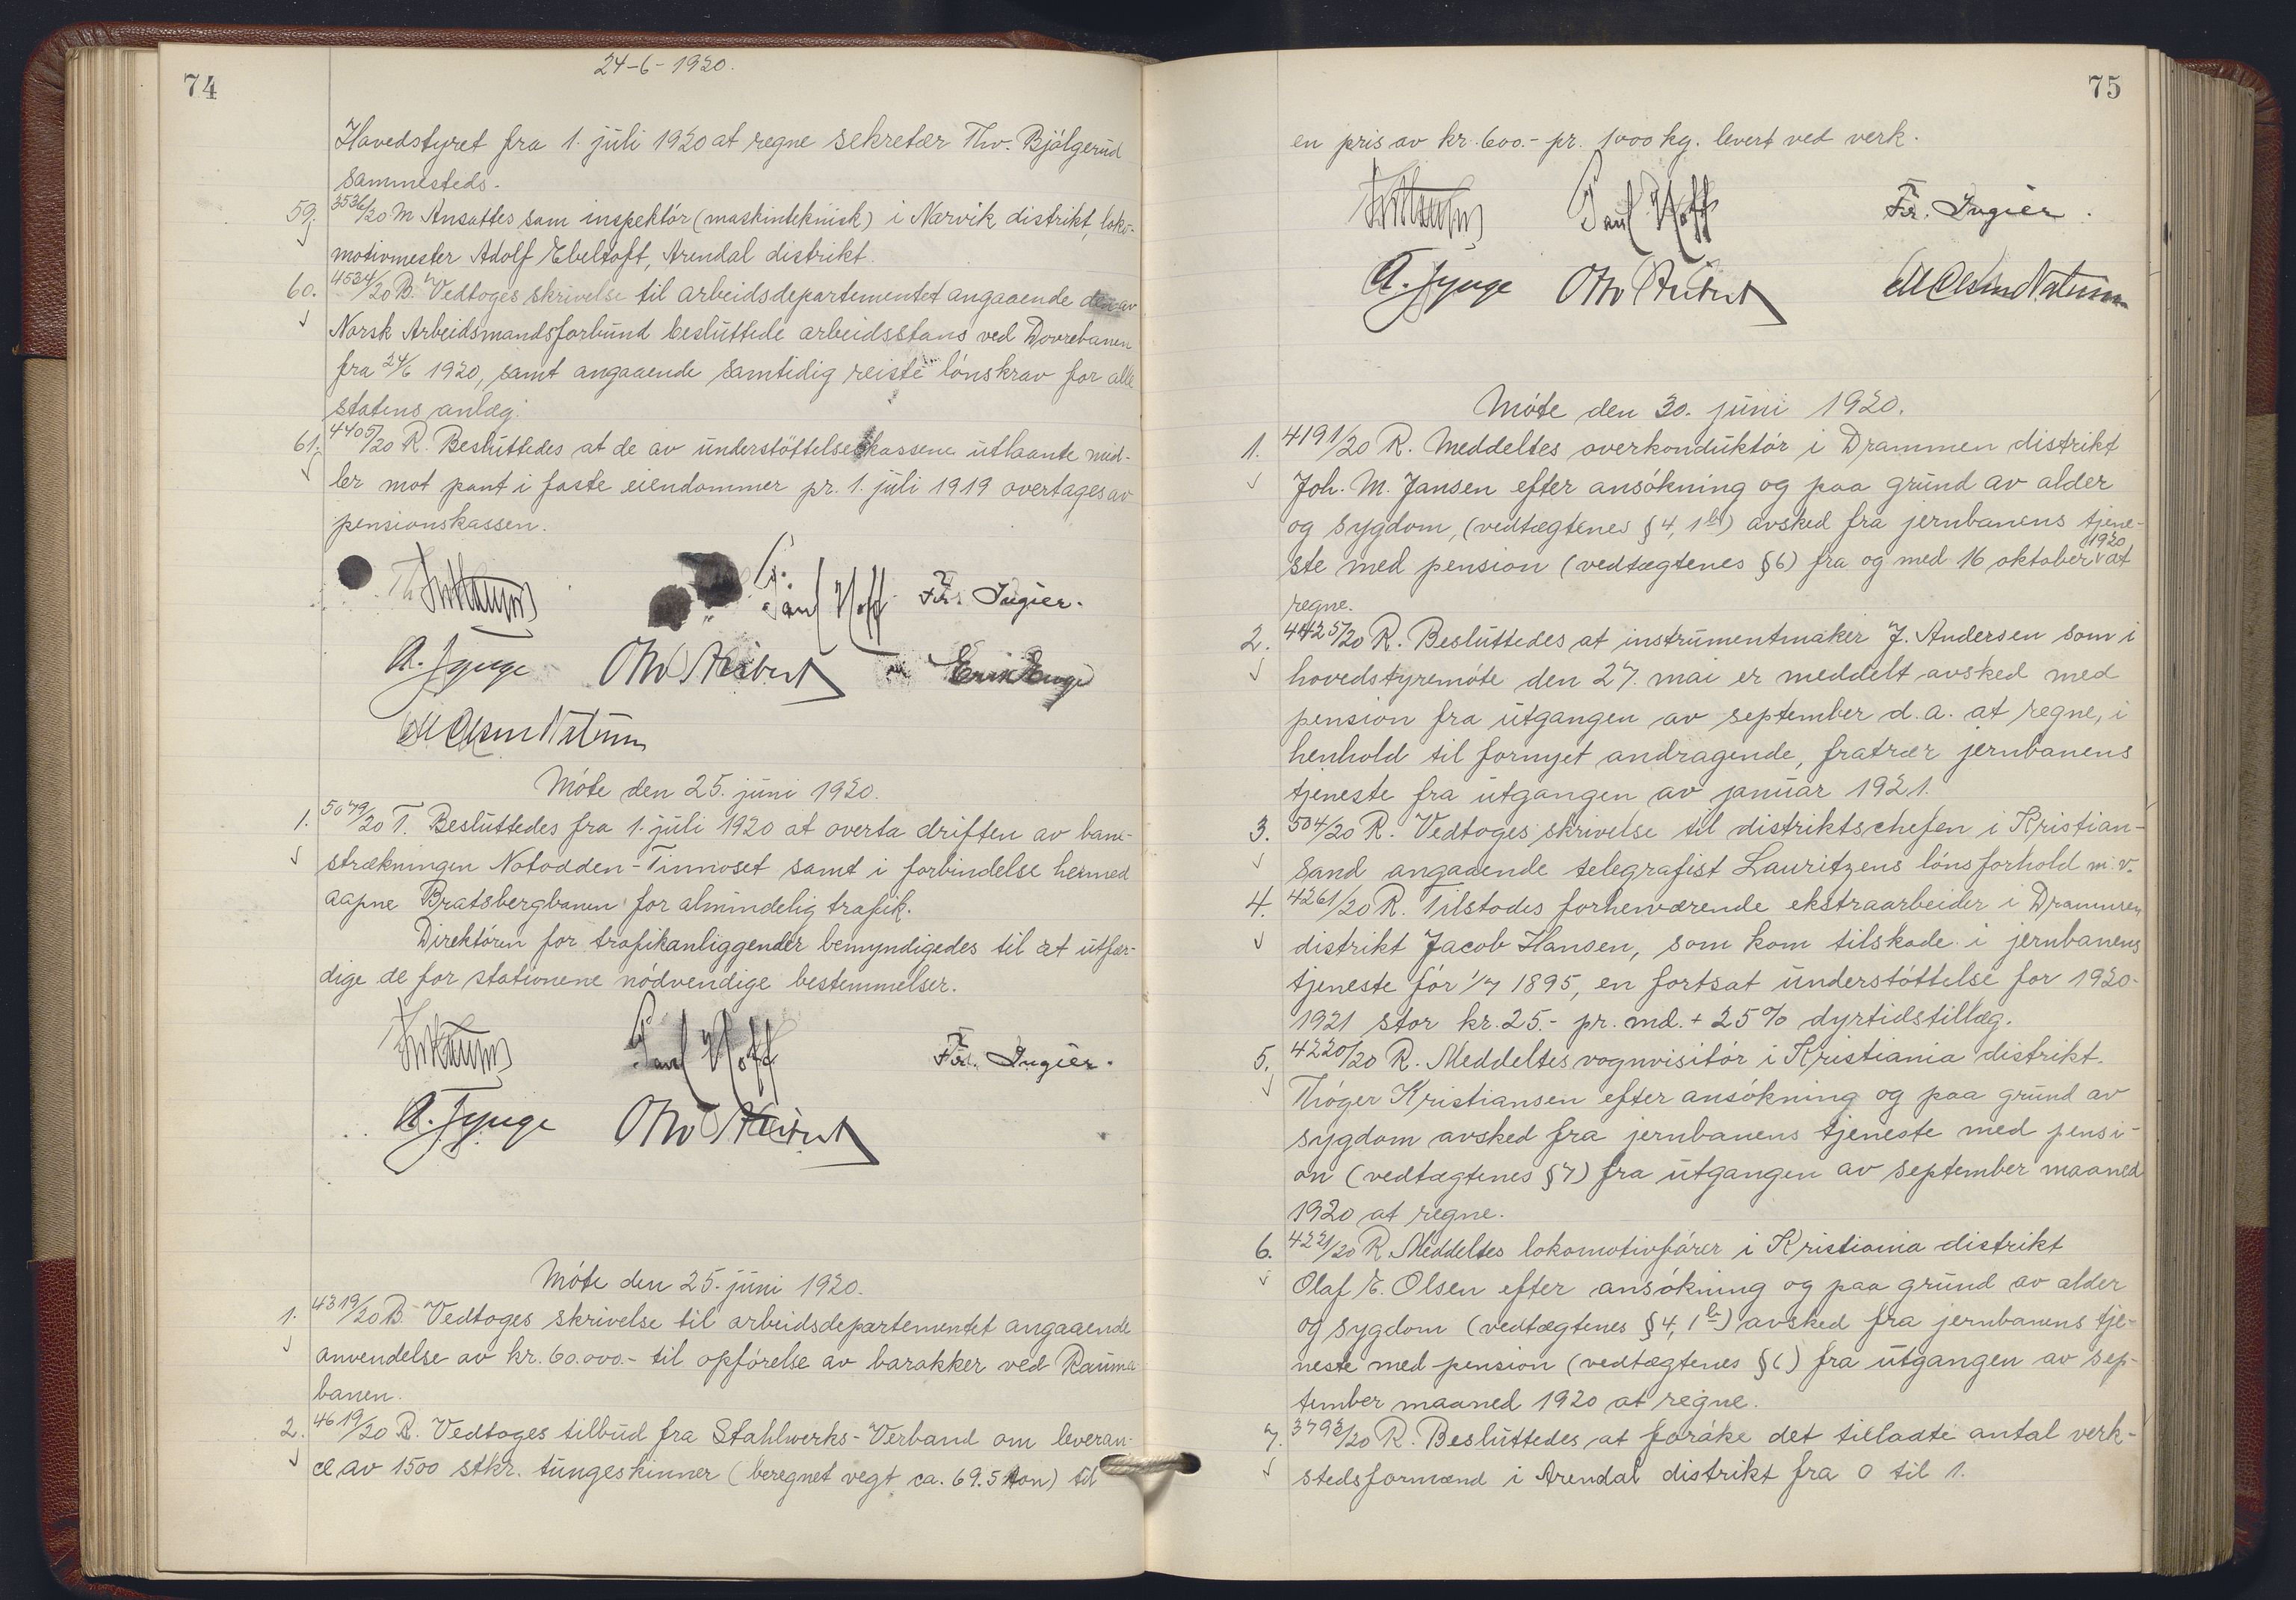 74
24-6-1920.
Hovedstyret fra 1. juli 1920 at regne sekretær Thv. Bjålgerud
sammesteds.
59. 3536/20 M Ansattes som inspektör (maskinteknisk) i Narvik distrikt, loko-
motivmester Adolf Ebeltoft, Arendal distrikt.
60. 4534/20 B. Vedtoges skrivelse til arbeidsdepartementet angaaende den av
Norsk Arbeidsmandsforbund besluttede arbeidsstans ved Dovrebanen
fra 24/6 1920, samt angaaende samtidig reiste lönskrav for alle
statens anlæg.
61. 4405/20 R. Besluttedes at de av understöttelseskassene utlaante mid-
ler mot pant i faste eiendommer pr. 1. juli 1919 overtages av
pensionskassen.
Paul Hoff Fr. Ingier.
A. Jynge
Möte den 25. juni 1920.
1. 5079/20 T. Besluttedes fra 1. juli 1920 at overta driften av bane-
strækningen Notodden-Tinnoset samt i forbindelse hermed
aapne Bratsbergbanen for almindelig trafik.
Direktören for trafikanliggender bemyndigedes til at utfær-
dige de for stationene nödvendige bestemmelser.
Paul Hoff Fr. Ingier.
A. Jynge
Möte den 25. juni 1920.
1. 4319/20 B. Vedtoges skrivelse til arbeidsdepartementet angaaende
anvendelse av kr. 60.000.- til opförelse av barakker ved Rauma-
banen.
2. 4619/20 R. Vedtoges tilbud fra Stahlwerks-Verband om leveran-
ce av 1500 stkr. tungeskinner (beregnet vegt ca. 69.5 ton) til
75
en pris av kr. 600.- pr. 1000 kg. levert ved verk.
Paul Hoff Fr. Ingier.
A. Jynge
Möte den 30. juni 1920.
1. 4191/20 R. Meddeltes overkonduktör i Drammen distrikt
Joh. M. Jansen efter ansökning og paa grund av alder
og sygdom, (vedtægtenes § 4, 1 b) avsked fra jernbanens tjene-
ste med pension (vedtægtenes § 6) fra og med 16 oktober 1920 at
regne.
2. 4425/20 R. Besluttedes at instrumentmaker J. Andersen som i
hovedstyremöte den 27. mai er meddelt avsked med
pension fra utgangen av september d.a. at regne, i
henhold til fornyet andragende, fratrær jernbanens
tjeneste fra utgangen av januar 1921.
3. 504/20 R. Vedtoges skrivelse til distriktschefen i Kristian-
sand angaaende telegrafist Lauritzens lönsforhold m.v.
4. 4261/20 R. Tilstodes forhenværende ekstraarbeider i Drammen
distrikt Jacob Hansen, som kom tilskade i jernbanens
tjeneste för 1/7 1895, en fortsat understöttelse for 1920-
1921 stor kr. 25.- pr. md. + 25% dyrtidstillæg.
5. 4220/20 R. Meddeltes vognvisitör i Kristiania distrikt.
Thöger Kristiansen efter ansökning og paa grund av
sygdom avsked fra jernbanens tjeneste med pensi-
on (vedtægtenes § 7) fra utgangen av september maaned
1920 at regne.
6. 4221/20 R. Meddeltes lokomotivförer i Kristiania distrikt
Olaf E. Olsen efter ansökning og paa grund av alder
og sygdom (vedtægtenes § 4, 1 b) avsked fra jernbanens tje-
neste med pension (vedtægtenes § 6) fra utgangen av sep-
tember maaned 1920 at regne.
7. 3792/20 R. Besluttedes at foröke det tilladte antal verk-
stedsformænd i Arendal distrikt fra 0 til 1.